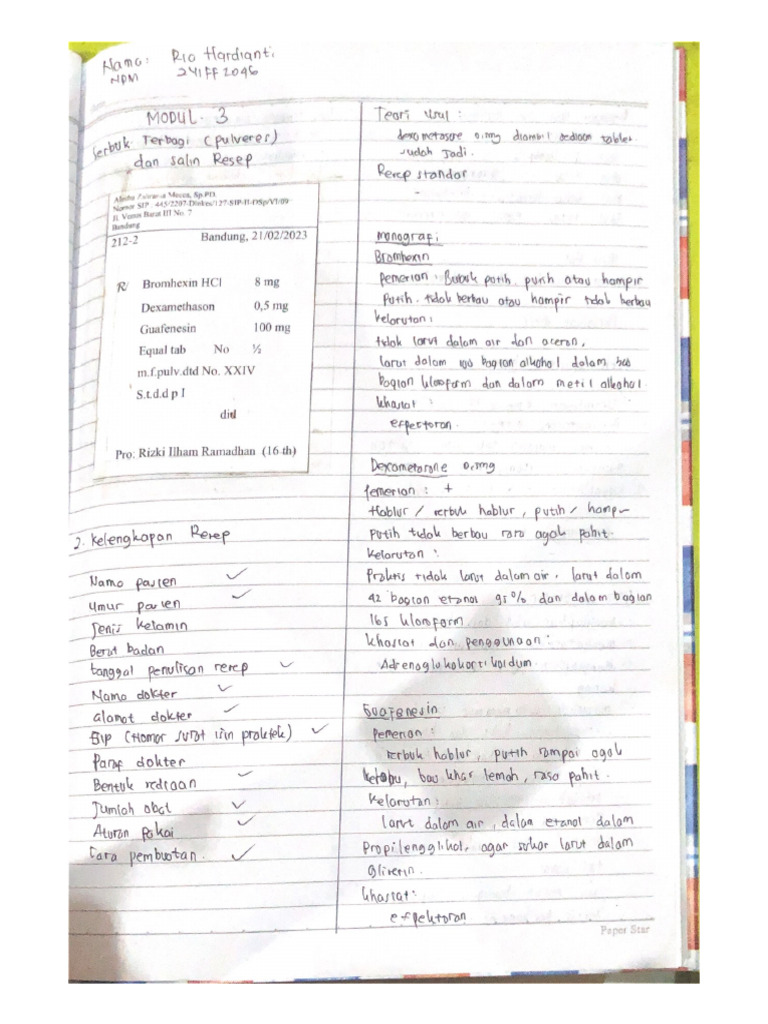 Nama: Rio Hardianti
NPM 241FF2046
MODUL 3
Serbuk Terbagi (pulveres)
dan salin Resep
Nomor SIP : 445/2207-Dinkes/127-SIP-II-DSp/VI/09
Jl. Venus Barat III No. 7
Bandung
212-2 Bandung, 21/02/2023
R/ Bromhexin HCl 8 mg
Dexamethason 0,5 mg
Guafenesin 100 mg
Equal tab No ½
m.f.pulv.dtd No. XXIV
S.t.d.d p I
did
Pro: Rizki Ilham Ramadhan (16 th)
2. Kelengkapan Resep
Nama pasien ✓
Umur pasien ✓
Jenis kelamin
Berat badan
tanggal penulisan resep ✓
Nama dokter ✓
alamat dokter ✓
SIP (Nomor surat izin praktek) ✓
Paraf dokter
Bentuk sediaan ✓
Jumlah obat ✓
Aturan pakai ✓
Cara pembuatan. ✓
Teori Usul :
dexometasone 0.mg diambil sediaan tablet
sudah Jadi.
Resep standar
-
Monografi
Bromhexin
Pemerian : Bubuk putih. putih atau hampir
Putih. tidak berbau atau hampir tidak berbau
kelarutan :
tidak larut dalam air dan aceran,
larut dalam 100 bagian alkohol dalam
bagian kloroform dan dalam metil alkohol.
khasiat :
espectoran.
Dexametasone 0.mg
Pemerian : +
Hablur / serbuk hablur, putih / hamp-
Putih tidak berbau rasa agak pahit.
Kelarutan :
Praktis tidak larut dalam air. larut dalam
42 bagian etanol 95% dan dalam bagian
165 kloroform.
khasiat dan penggunaan :
Adrenoglukokortikoidum
Guafenesin
Pemerian :
serbuk hablur, putih sampai agak
kelabu, bau khas lemah, rasa pahit.
Kelarutan :
larut dalam air, dalan etanol dalam
Propilengglikol, agar sukar larut dalam
Gliserin.
khasiat :
efpektoran
Paper Star